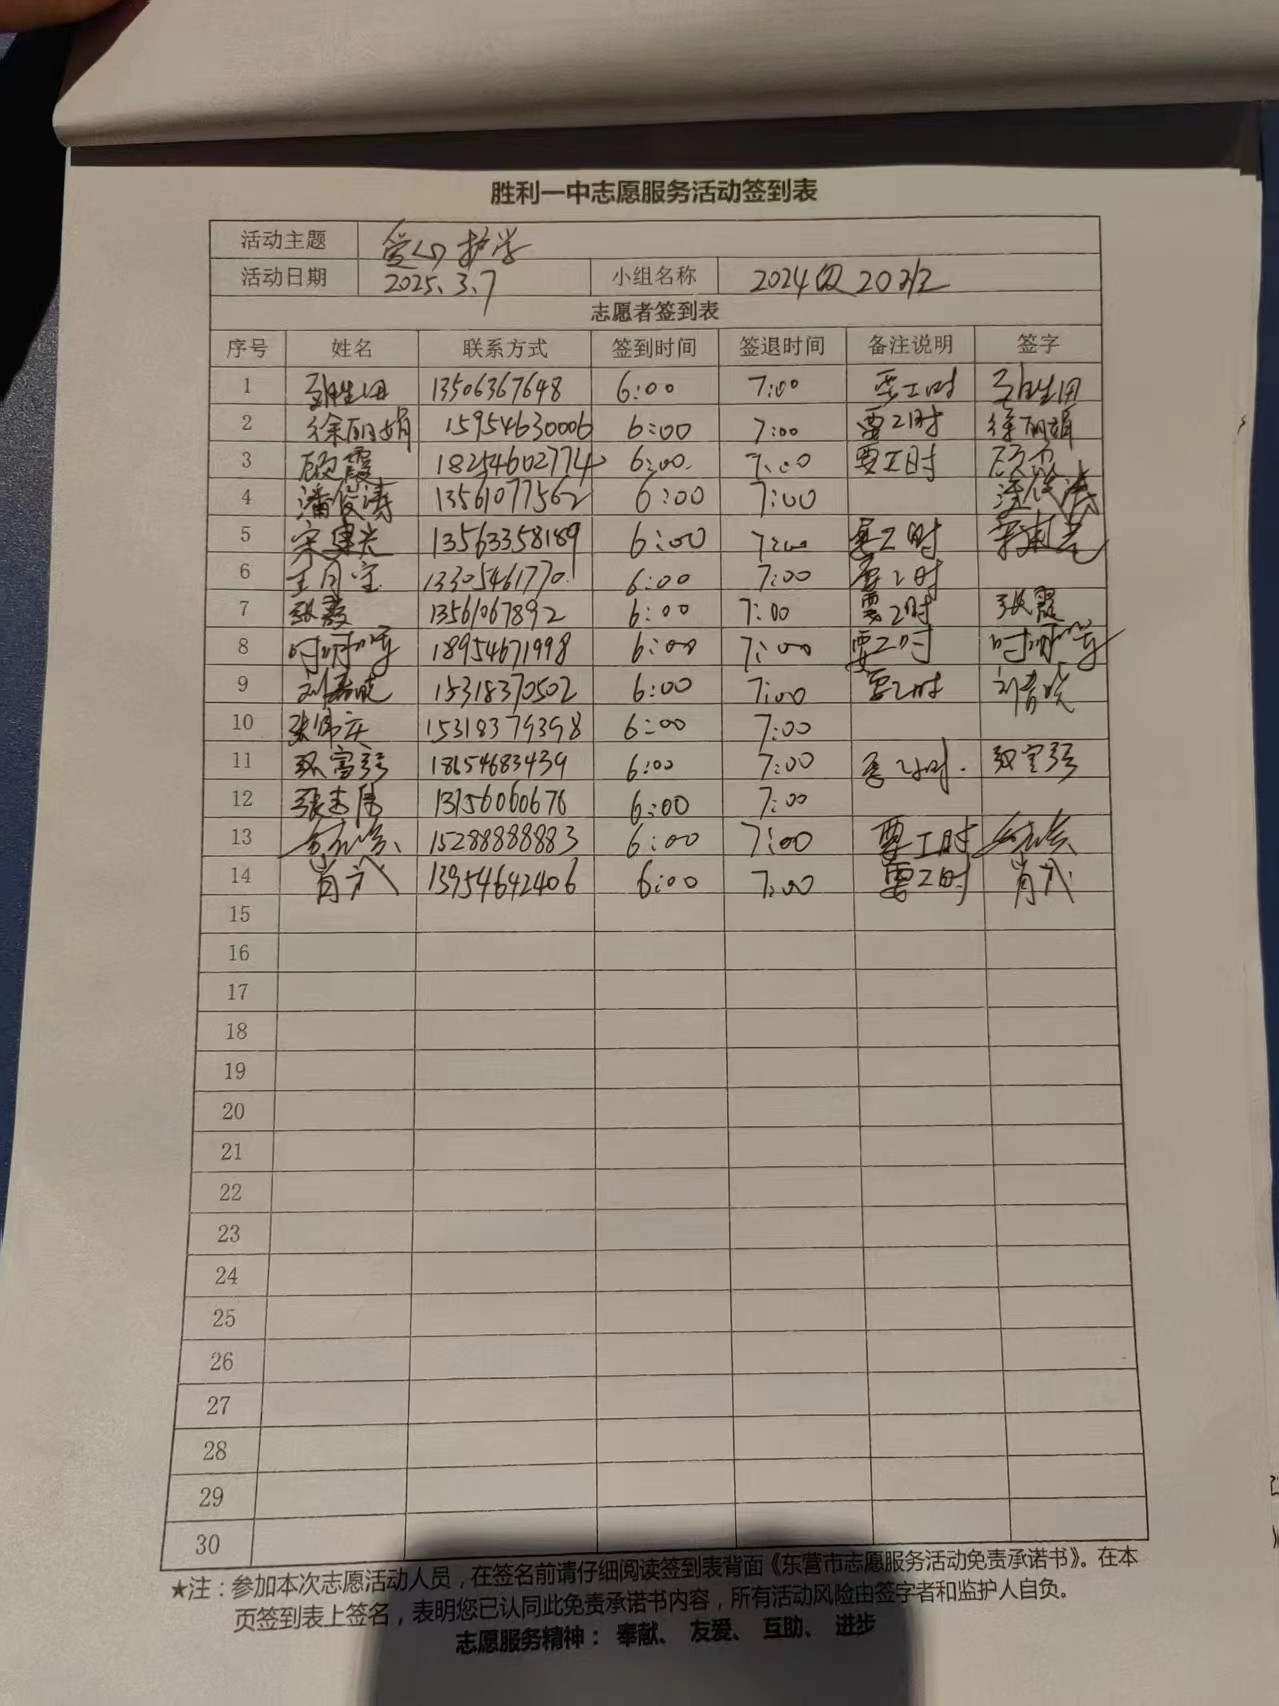 胜利一中志愿服务活动签到表
活动主题 爱心护学
活动日期 2025.3.7 小组名称 2024级20班
志愿者签到表
序号 姓名 联系方式 签到时间 签退时间 备注说明 签字
1 13506367648 6:00 7:00 要工时
2 徐丽娟 15954630006 6:00 7:00 要工时 徐丽娟
3 顾霞 18254602774 6:00 7:00 要工时
4 潘俊涛 13561077562 6:00 7:00 潘俊涛
5 宋建光 13563358189 6:00 7:00 要工时 宋建光
6 王月宝 13305461770 6:00 7:00 要工时
7 张霞 13561067892 6:00 7:00 要工时 张霞
8 18954671998 6:00 7:00 要工时
9 15318370502 6:00 7:00 要工时
10 张伟庆 15318379398 6:00 7:00
11 18654683439 6:00 7:00 要工时
12 张志伟 13156060676 6:00 7:00
13 15288888883 6:00 7:00 要工时
14 肖武 13954642406 6:00 7:00 要工时 肖武
15
16
17
18
19
20
21
22
23
24
25
26
27
28
29
30
★注：参加本次志愿活动人员，在签名前请仔细阅读签到表背面《东营市志愿服务活动免责承诺书》。在本
页签到表上签名，表明您已认同此免责承诺书内容，所有活动风险由签字者和监护人自负。
志愿服务精神：奉献、友爱、互助、进步